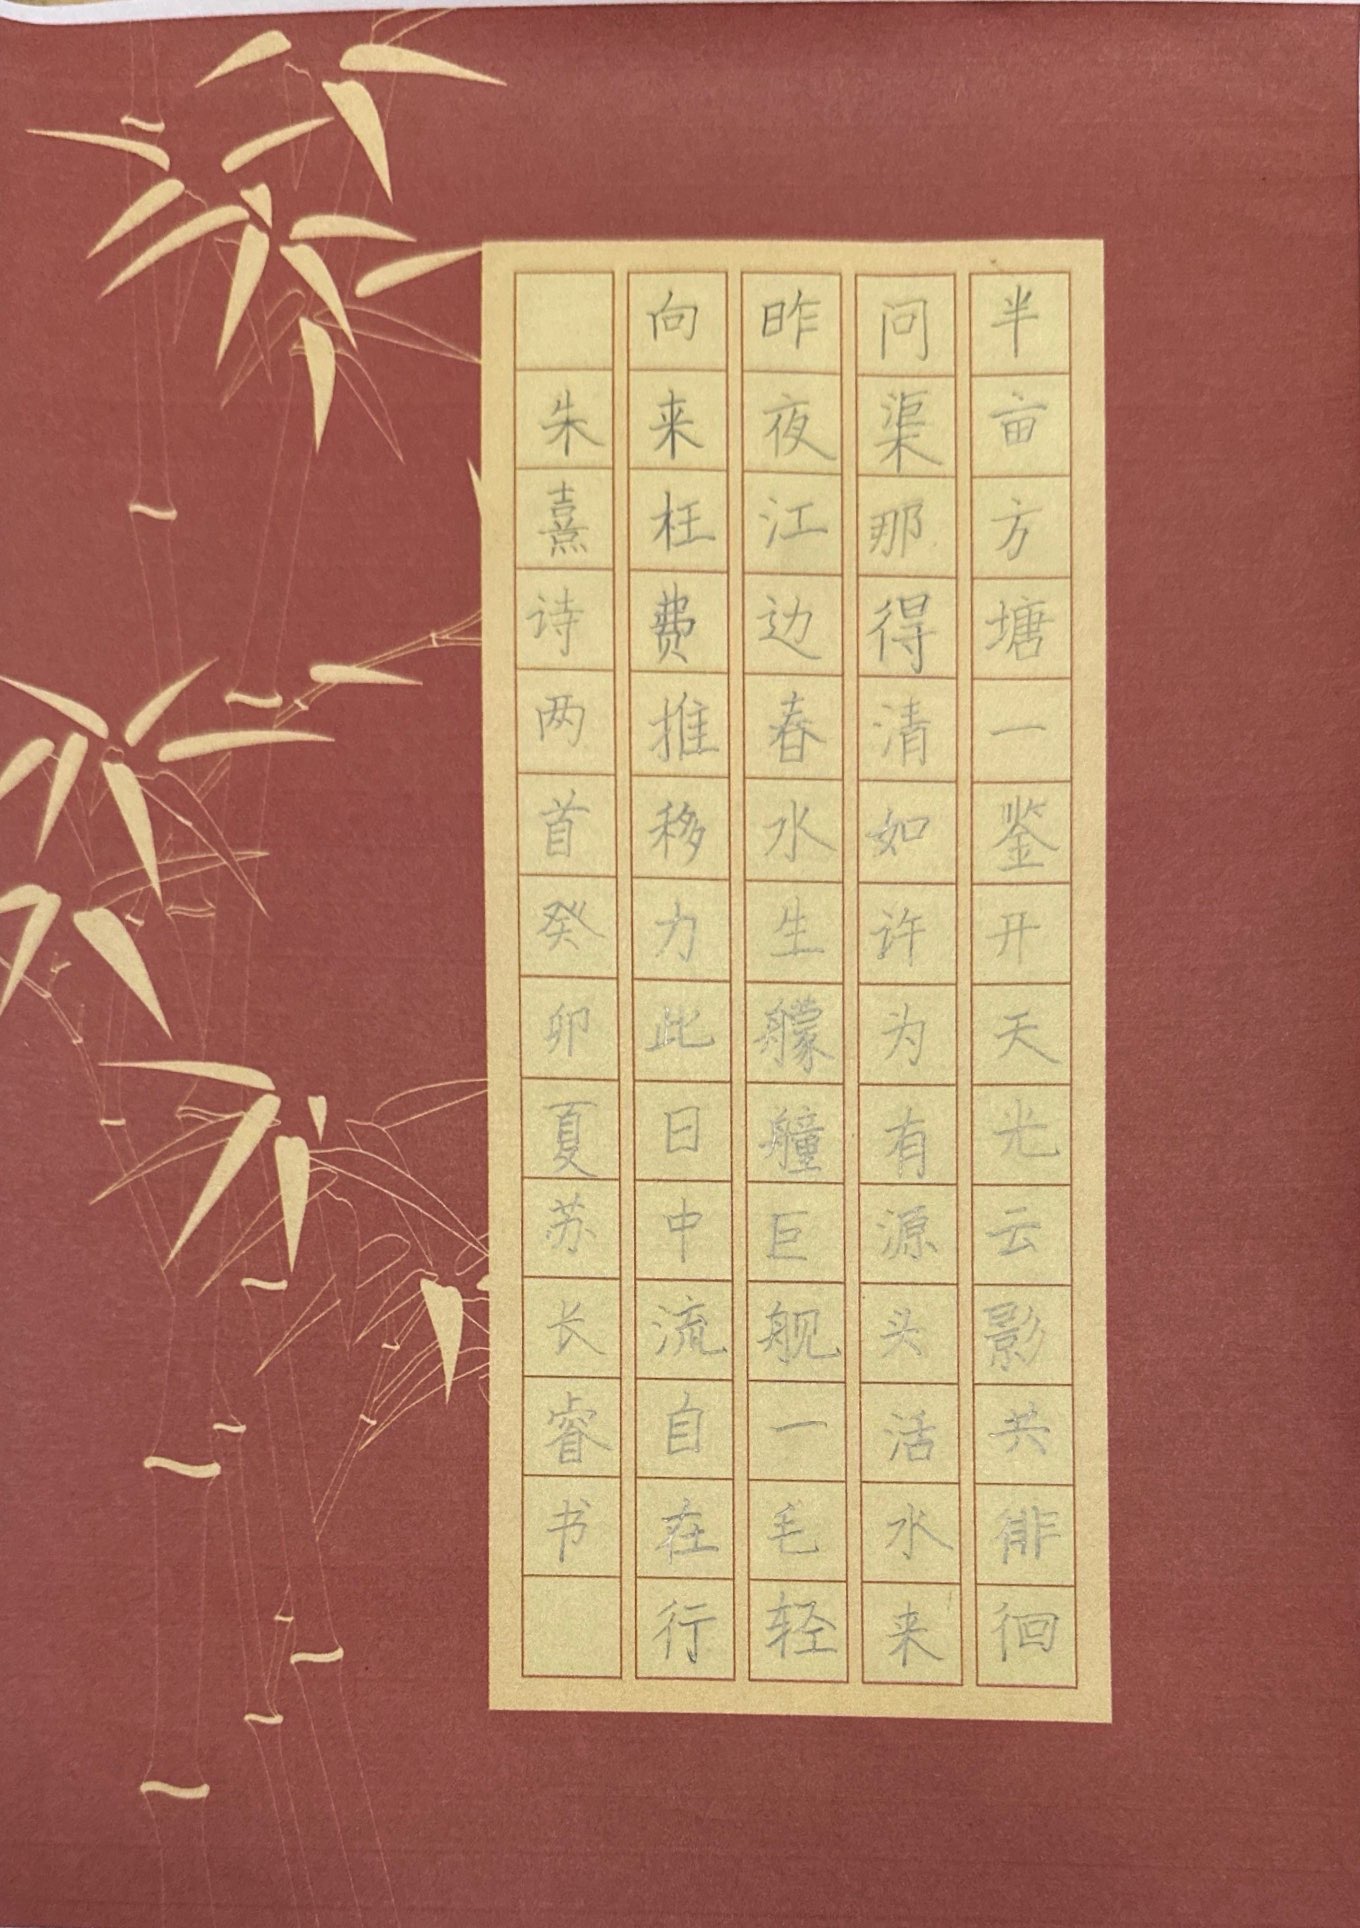 半亩方塘一鉴开天光云影共徘徊
问渠那得清如许为有源头活水来
昨夜江边春水生艨艟巨舰一毛轻
向来枉费推移力此日中流自在行
朱熹诗两首癸卯夏苏长睿书